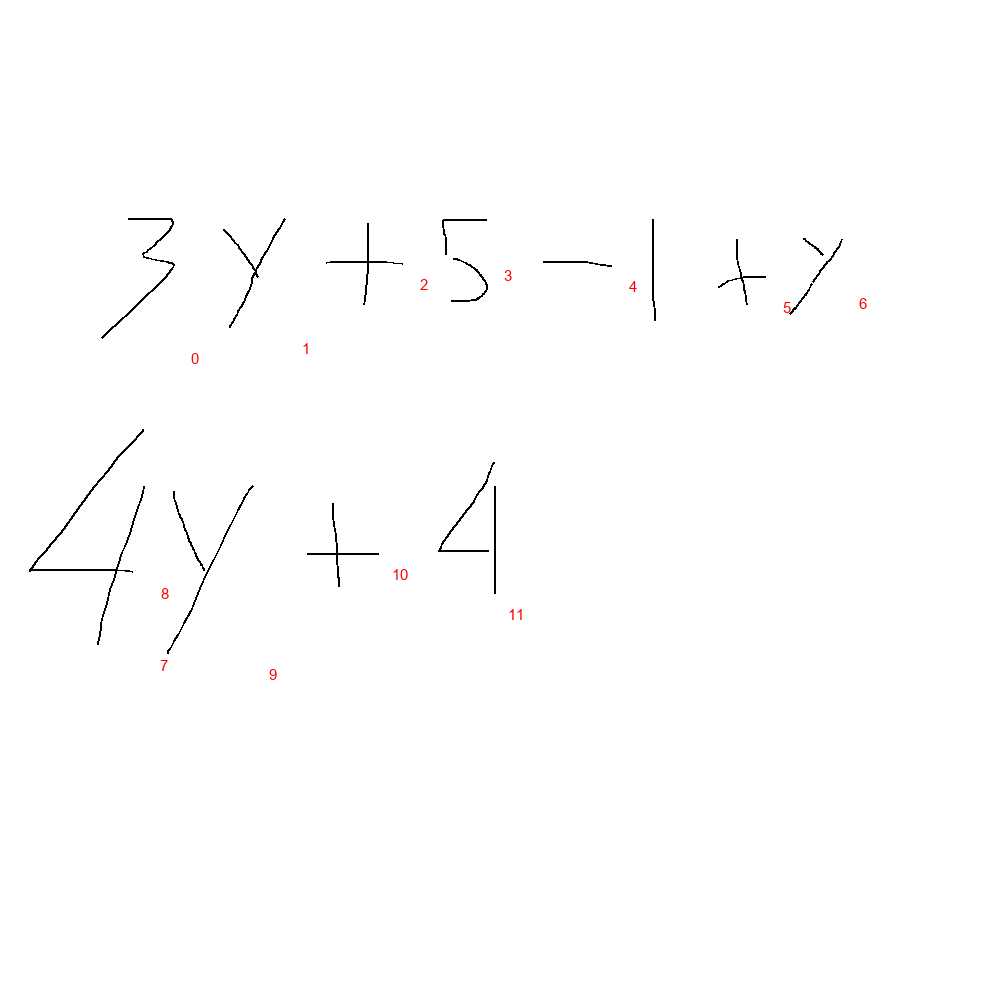 3y + 5 - 1 + y
0 1 2 3 4 5 6
4y + 4
7 8 9 10 11